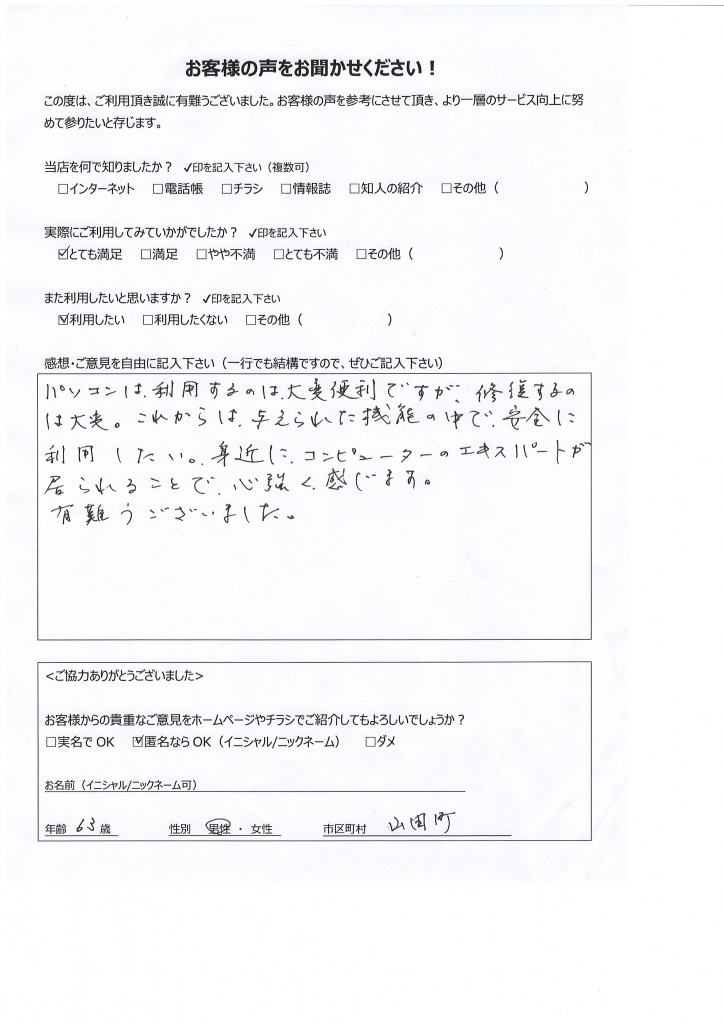 お客様の声をお聞かせください！
この度は、ご利用頂き誠に有難うございました。お客様の声を参考にさせて頂き、より一層のサービス向上に努
めて参りたいと存じます。
当店を何で知りましたか？ ✓印を記入下さい（複数可）
□インターネット □電話帳 □チラシ □情報誌 □知人の紹介 □その他（ ）
実際にご利用してみていかがでしたか？ ✓印を記入下さい
☑とても満足 □満足 □やや不満 □とても不満 □その他（ ）
また利用したいと思いますか？ ✓印を記入下さい
☑利用したい □利用したくない □その他（ ）
感想・ご意見を自由に記入下さい（一行でも結構ですので、ぜひご記入下さい）
パソコンは、利用するのは、大変便利ですが、修復するの
は大変。これからは、与えられた機能の中で、安全に
利用したい。身近に、コンピューターのエキスパートが
居られることで、心強く、感じます。
有難うございました。
<ご協力ありがとうございました>
お客様からの貴重なご意見をホームページやチラシでご紹介してもよろしいでしょうか？
□実名で OK ☑匿名なら OK（イニシャル/ニックネーム） □ダメ
お名前（イニシャル/ニックネーム可）
年齢 63 歳 性別 男性 ・ 女性 市区町村 山田町